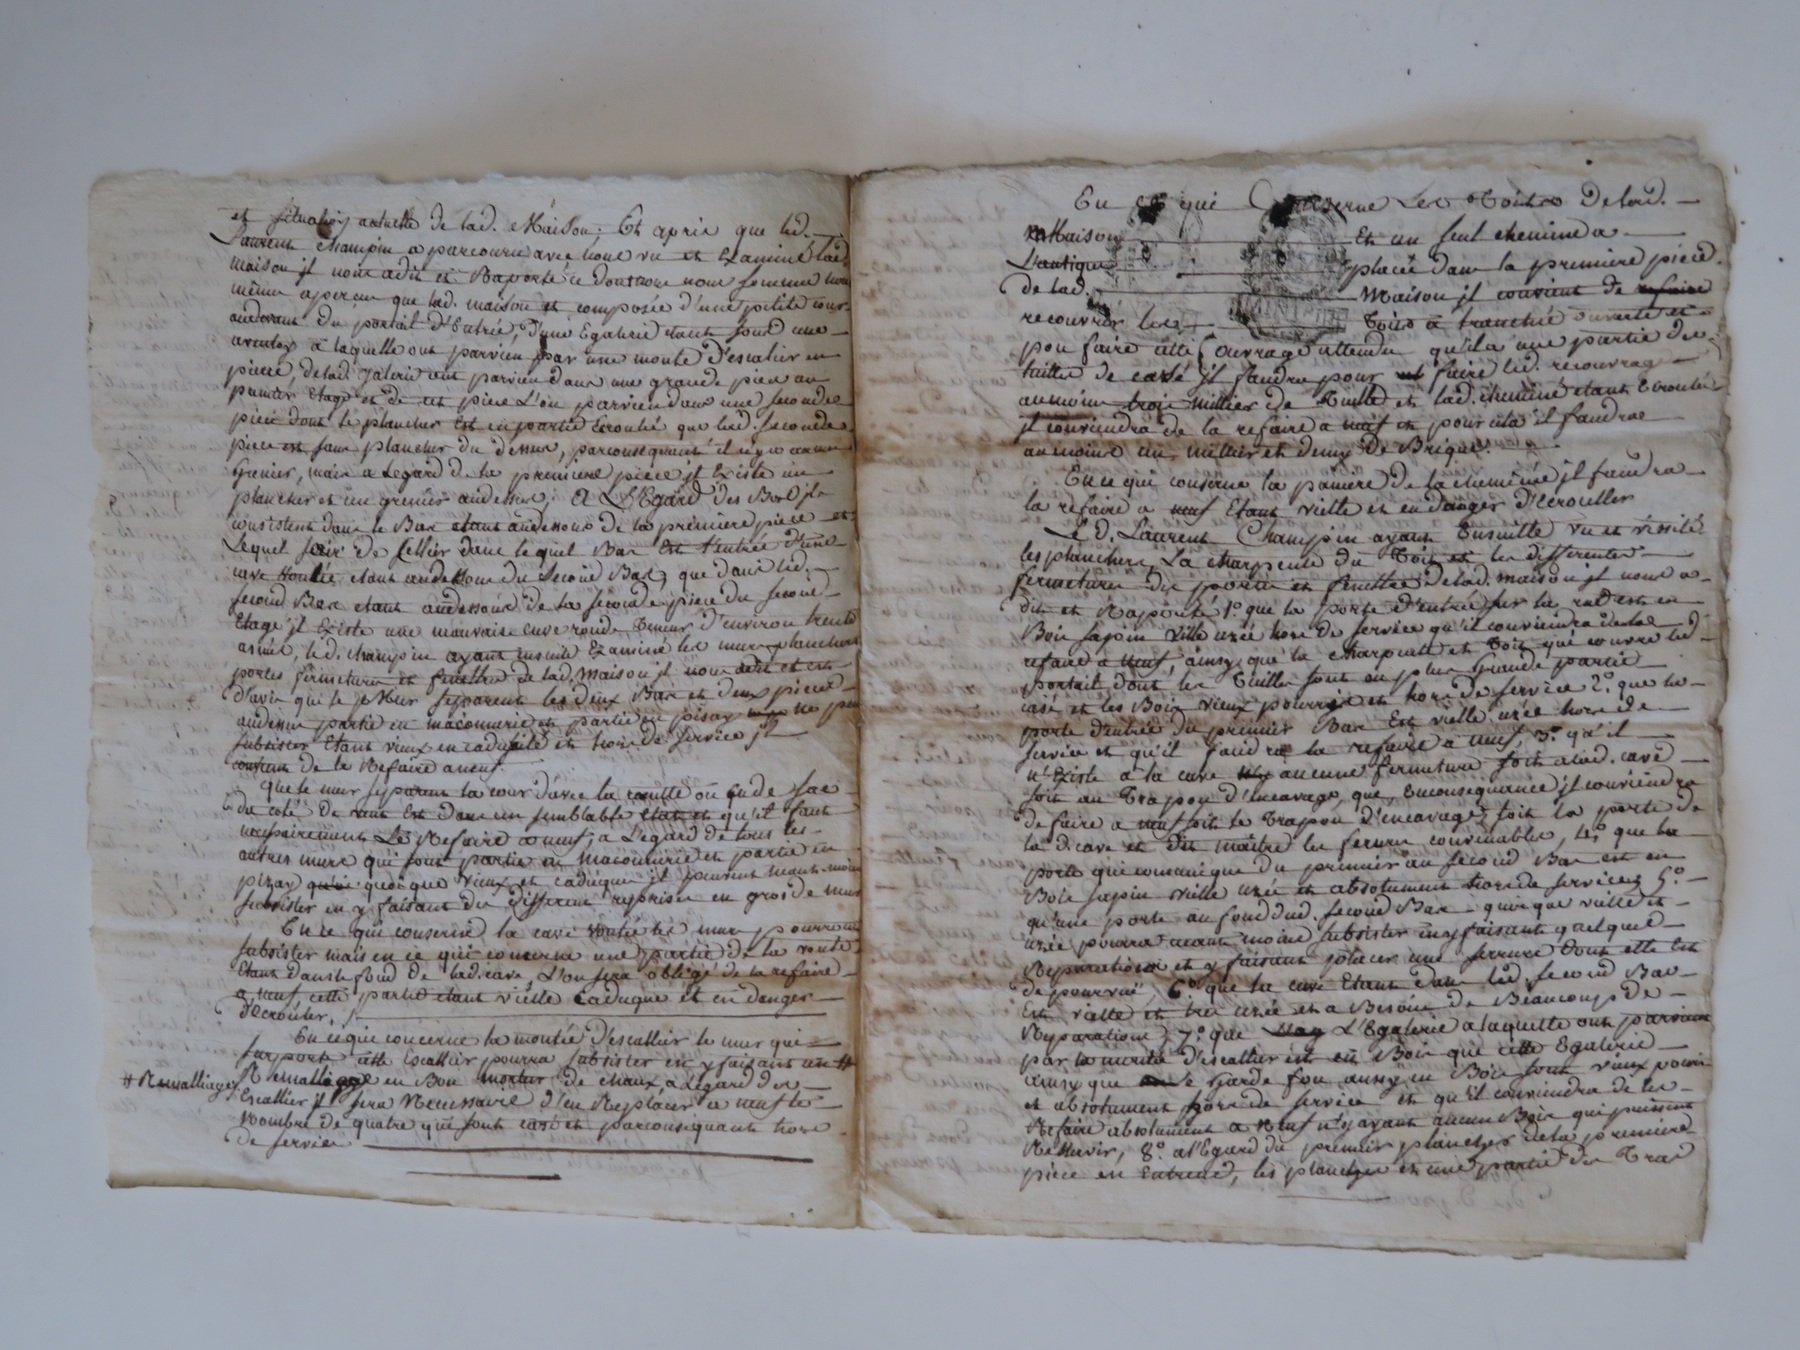 et situation actuelle de lad. Maison; Et après que led.
Laurent Champin a parcouru avec nous vu et Examiné lad.
maison jl nous adit et Raporté ce dont nous nous somme nous
même aperçu que lad. maison est composée d'une petite cour
audevant du portail d'Entrée, d'une Egalerie étant sous une
a laquelle ont parvien par une monte d'escalier en
pierre de lad. Jalerie ont parvien dans une grande piece au
premier Etage et de cet piece L'on parvien dans une seconde
piece dont le plancher Est en partie Ecroulé que lad. seconde
piece est sans plancher du dessus, parconsequant il n'y a aucun
Grenier, mais a Legard de la premiere piece jl Existe un
plancher et un grenier audessus; A L'Egard des Bas jls
consistent dans le Bas etant audessous de la premiere piece et
Lequel sert de Cellier dans lequel Bas Est l'entrée d'une
cave voutée etant audessous du Second Bas, que dans led.
second Bas etant audessous de la seconde piece du second
Etage jl Existe une mauvaise cuve ronde Teneur d'environ trente
asnées, led. Champin ayant ensuite Examiné les murs planchers
portes fermetures et fenettres de lad. Maison jl nous adit et est
d'avis que le Mur separent les deux Bas et deux pieces
audessus partie en maconnerie et partie en pisay ne peu
subsister Etant vieux en caducité et hors de service jl
convient de le Refaire aneuf.
Que le mur separant la cour d'avec la ou de sac
du coté de vent Est dans un semblable etat et qu'il faut
necessairement Le Refaire a neuf, a L'egard de tous les
autres murs qui sont partie en maconnerie et partie en
pizay quoique vieux et caduques jl peuvent neant-moins
subsister en y faisant des differentes reprises en gros de murs
En ce qui conserne la cave voutée les murs pourront
subsister mais en ce qui concerne une partie de la voute
Etant dans le fond de lad. cave, L'on sera obligé de la refaire
a neuf cette partie etant vieille caduque et en danger
d'Ecrouler.
En ce qui concerne la montée d'escallier le mur qui
suporte cette Escallier pourra subsister en y faisant un #
# Remalliages
Remalliage en Bon mortier de chaux a Legard des
Escallier jl sera Necessaire d'en Replacer a neuf le
Nombre de quatre qui sont cassé et parconsequant hors
de service
En ce qui Conserne Les Toits De lad.
Maison Et un seul cheminé a
L'antique placée dans la premiere piece
de lad. Maison jl convient de refaire
recouvrir les Toits a tranché ouverte et
pou faire cette ouvrage attendu qu'il a une partie des
tuilles de casé jl faudra pour faire led. recouvrag
au moins trois millier de Tuille et lad. cheminé etant Ecroulé
jl conviendra de la refaire a neuf et pour cela il faudra
au moins un millier et demy de Brique.
En ce qui conserne la paniere De la cheminée jl faudra
la refaire a neuf Etant vieille et en danger d'Ecrouller
Le d. Laurent Champin ayant Ensuitte vu et vissité
les planchers, La charpente du Toit et les differentes
fermetures des portes et fenettres de lad. maison jl nous a
dit et Raporté 1.º que la porte d'entrée sur la rue est en
Bois sapin vielle uzée hors de service qu'il conviendra de la
refaire a neuf, ainsy que la charpente et Toit qui couvre led
portail dont les Tuilles sont en plus Grande partie
cassé et les Bois vieux pourris et hors de service 2.º que la
porte d'entrée du premier Bas Est vielle uzée hors de
service et qu'il faudra la refaire a neuf, 3.º qu'il
n'Existe a la cave aucune fermeture soit a lad. cave
soit au Trapon d'encavage, que, enconsequance jl conviendra
de faire a neuf soit le Trapon d'encavage soit la porte de
la d. cave et dit maitre les ferrure convenables, 4.º que la
porte qui comunique du premier au second Bas est en
Bois sapin vielle uzée et absolument hors de service 5.º
qu'une porte au fond dud. second Bas quoique vielle et
uzée pourra neant moins subsister en y faisant quelques
Reparations et y faisant placer une serrure dont elle Est
depourvue, 6.º que la cuve Etant dans led. second Bas
Est vielle et tres uzée et a Besoin de Beaucoup de
Reparations, 7.º que L'Egalerie a laquelle ont parvient
par la montée d'escallier est en Bois que cette Egalerie
ainsy que le Garde fou aussy en Bois sont vieux pourri
et absolument hors de service et qu'il conviendra de les
Refaire absolument a Neuf n'y ayant aucun Bois qui puissent
Reservir, 8.º a l'Egard du premier plancher de la premiere
piece en Entrant, les planches et une partie des Tras